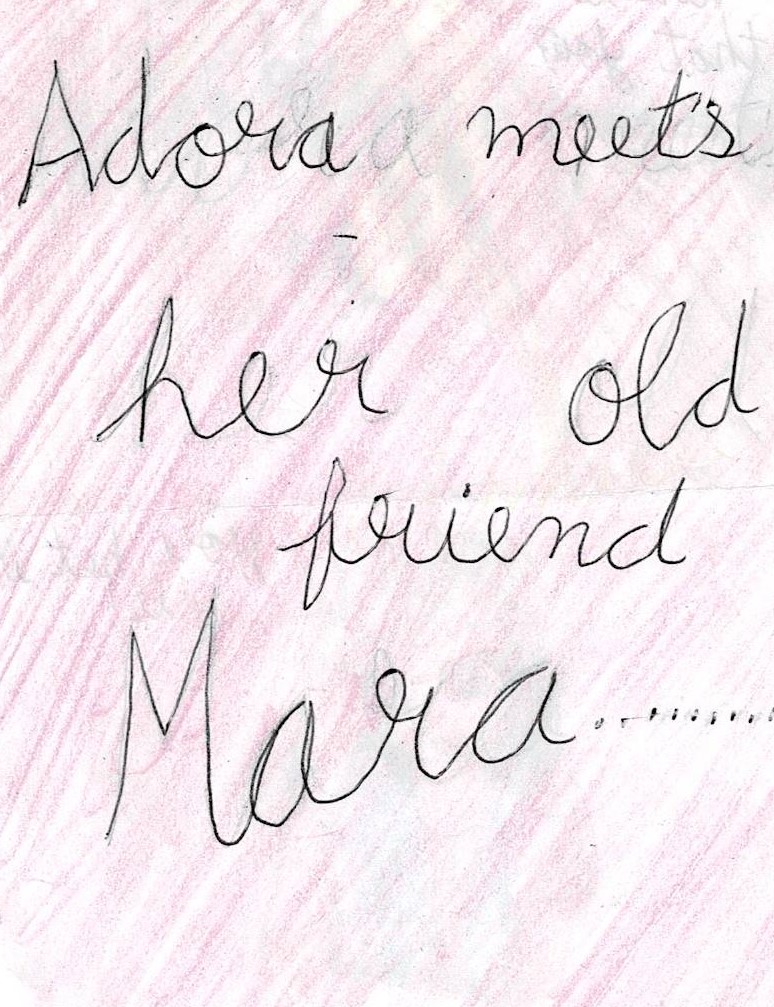 Adora meet's
her old
friend
Mara..........